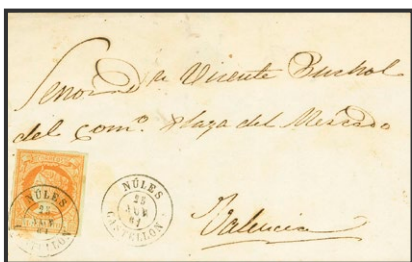 Señor Dn Vicente Puchol
del comº. Plaza del Mercado
NÚLES
25
CASTELLON
NÚLES
CASTELLON
Valencia